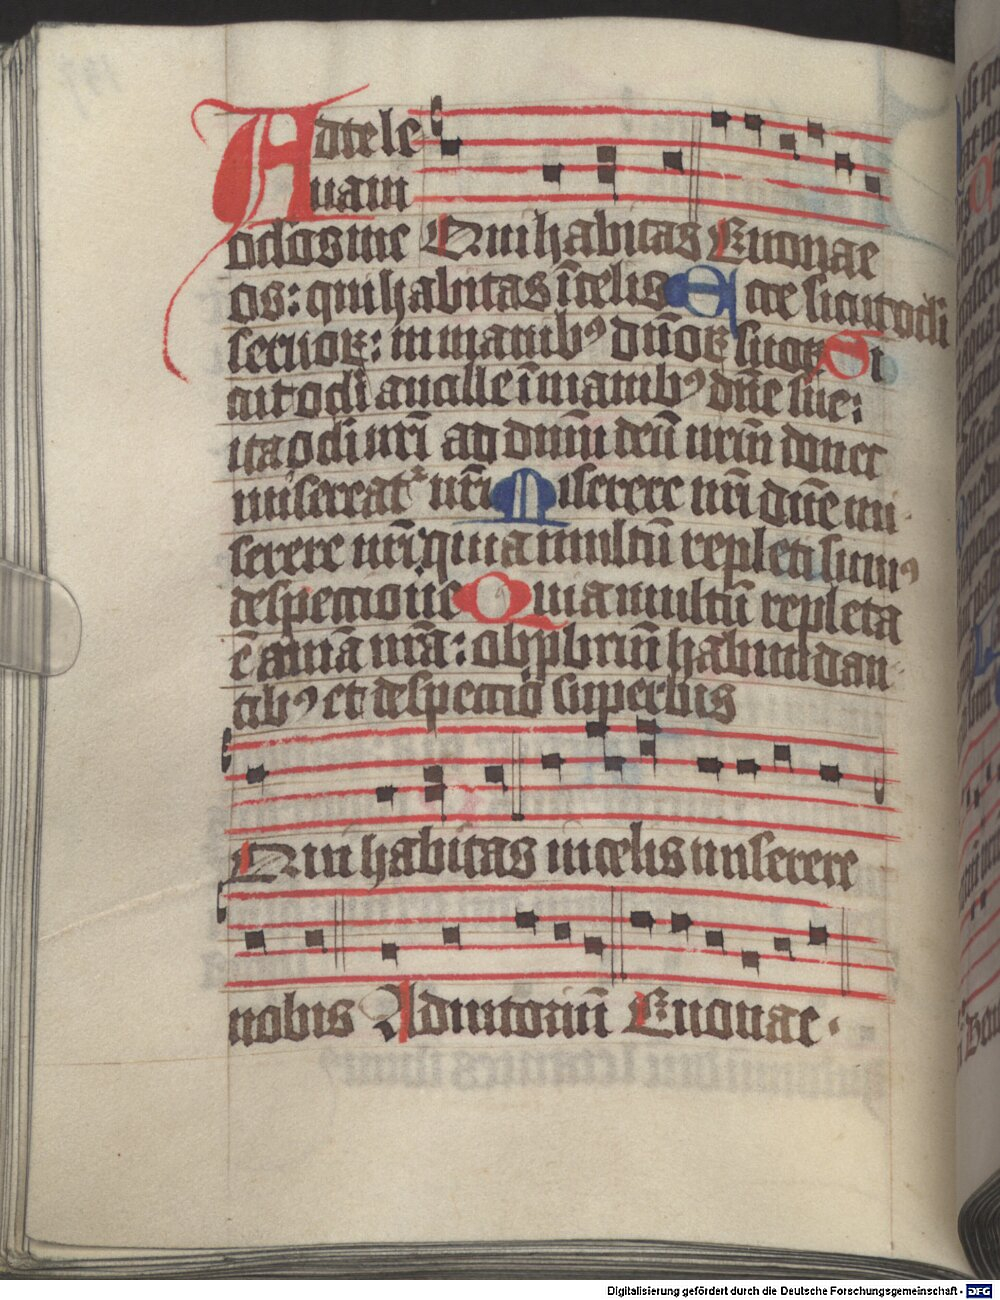 Ad te le
uaui
oc̄los me Qui habitas Euouae
os: qui habitas ī celis Ecce sicut oc̄li
seruoꝝ: in manibꝰ dn̄oꝝ suoꝝ Si
cut oc̄li ancille ī manibꝰ dn̄e sue:
ita oc̄li nr̄i ad dnm̄ deū nrm̄ donec
misereat᷑ nr̄i Miserere nr̄i dn̄e mi
serere nr̄i: quia multū repleti sumꝰ
despectione Quia multū repleta
ē aīa nr̄a: obpbriū habundan
tibꝰ et despectio superbis
Qui habitas in celis miserere
nobis Adiutoriū Euouae.
Digitalisierung gefördert durch die Deutsche Forschungsgemeinschaft - DFG